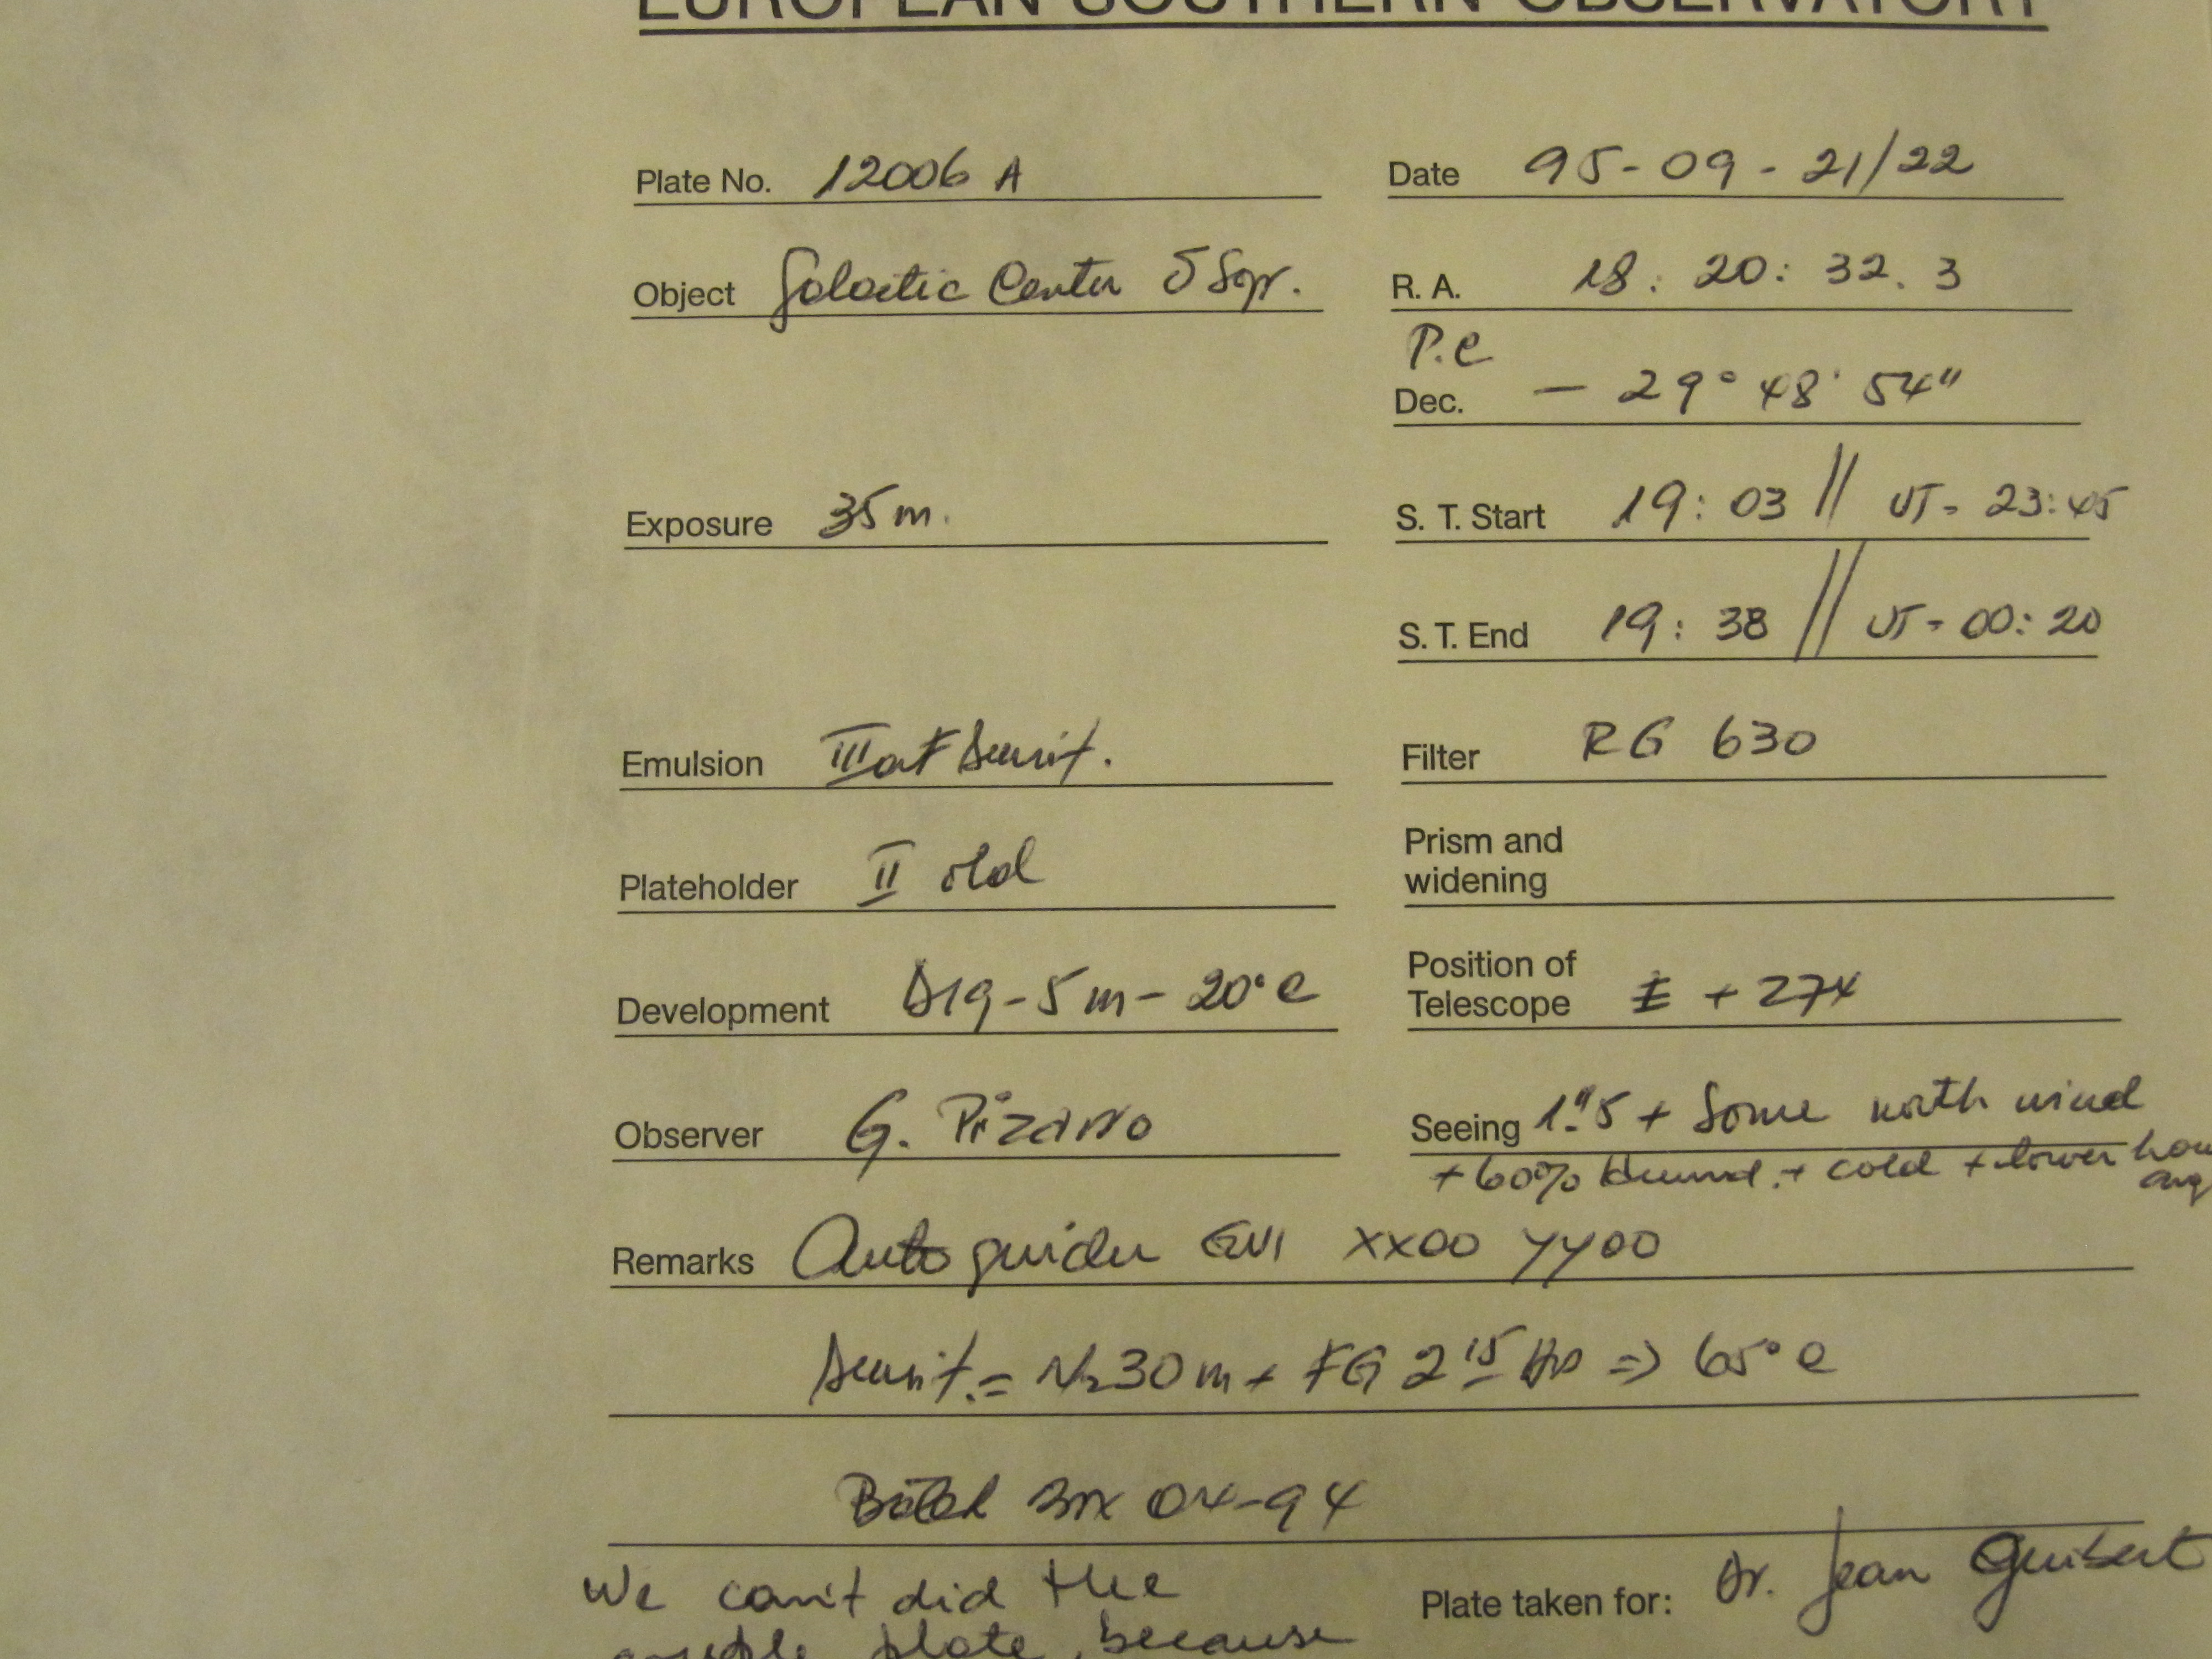 EUROPEAN SOUTHERN OBSERVATORY
Plate No. 12006 A
Date 95-09-21/22
Object Galactic Center
R. A. 18: 20: 32. 3
P.C
Dec. - 29° 48' 54"
Exposure 35m.
S. T. Start 19: 03 // UT- 23:45
S. T. End 19: 38 // UT- 00:20
Emulsion IIIaF Sensit.
Filter RG 630
Plateholder II old
Prism and
widening
Development D19-5m-20°C
Position of
Telescope E + 274
Observer G. Pizarro
Seeing 1".5 + Some north wind
+60% Humid.+ cold + lower
Remarks Autoguider GV1 XX00 YY00
Sensit.= N2 30m + FG 2 15 Hrs => 65°C
Batch 04-94
We can't did the
plate, because
Plate taken for: Dr. Jean Guibert